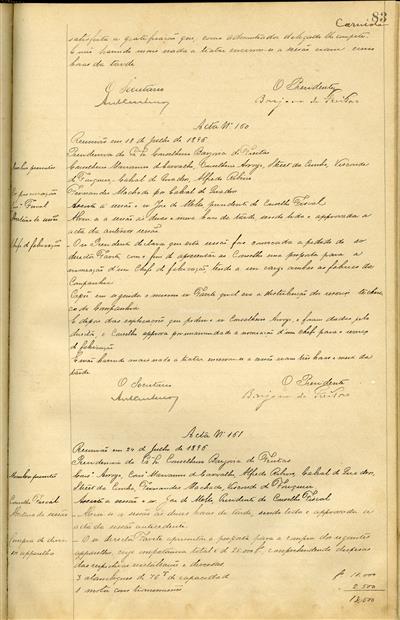 83
satisfeita a gratificação que, como administrador delegado lhe compete.
E não havendo mais nada a tratar encerrou-se a sessão eram cinco
horas da tarde
O Secretario
O Presidente
Barjona de Freitas
Acta Nº 160
Reunião em 18 de Julho de 1896
Presidencia do Exº Sr Conselheiro Barjona de Freitas
Membros presentes
Conselheiro Marianno de Carvalho, Conselheiro Arroyo, Street da Cunha, Visconde
de Cabral de Alfredo Ribeiro
Fernandes Machado por Cabral de
Fiscal
Assiste á sessão o sr José de Mello presidente do Conselho Fiscal
Abertura da sessão
Abriu-se a sessão ás duas e meia horas da tarde, sendo lida e approvada a
acta da anterior sessão
Chefe de fabricação
O sr Presidente declara que esta sessão fora convocada a pedido do sr
director Favita com o fim de apresentar ao Conselho uma proposta para a
nomeação d'um Chefe de fabricação, tendo a seu cargo ambas as fabricas da
Companhia
Expõe em seguida o mesmo sr qual era a distribuição dos serviços techni
cos da Companhia
E depois das explicações que pediu o sr Conselheiro Arroyo, e foram dadas pelo
director, o Conselho approva por unanimidade a nomeação d'um chefe para o serviço
de fabricação
E não havendo mais nada a tratar encerrou-se a sessão eram três horas e meia da
tarde
O Secretario
O Presidente
Barjona de Freitas
Acta Nº 161
Reunião em 24 de Julho de 1896
Presidencia do Exº Sr Conselheiro Barjona de Freitas
Membros presentes
Consº Arroyo, Consº Marianno de Carvalho, Alfredo Ribeiro, Cabral de
Street da Cunha, Fernandes Machado, Visconde de
Conselho Fiscal
Assiste á sessão o sr José de Mello, Presidente do Conselho Fiscal
Abertura da sessão
Abriu-se a sessão ás duas horas da tarde, sendo lida e approvada a
acta da sessão antecedente
Compra de diver
sos apparelhos
O sr director apresenta a proposta para a compra dos seguintes
apparelhos, cujo complemento total é de 25.000 comprehendendo despesas
das respectivas installações e diversas
3 alambiques de 70 de capacidade
11.000
1 motor com transmissões
2.500
13.500